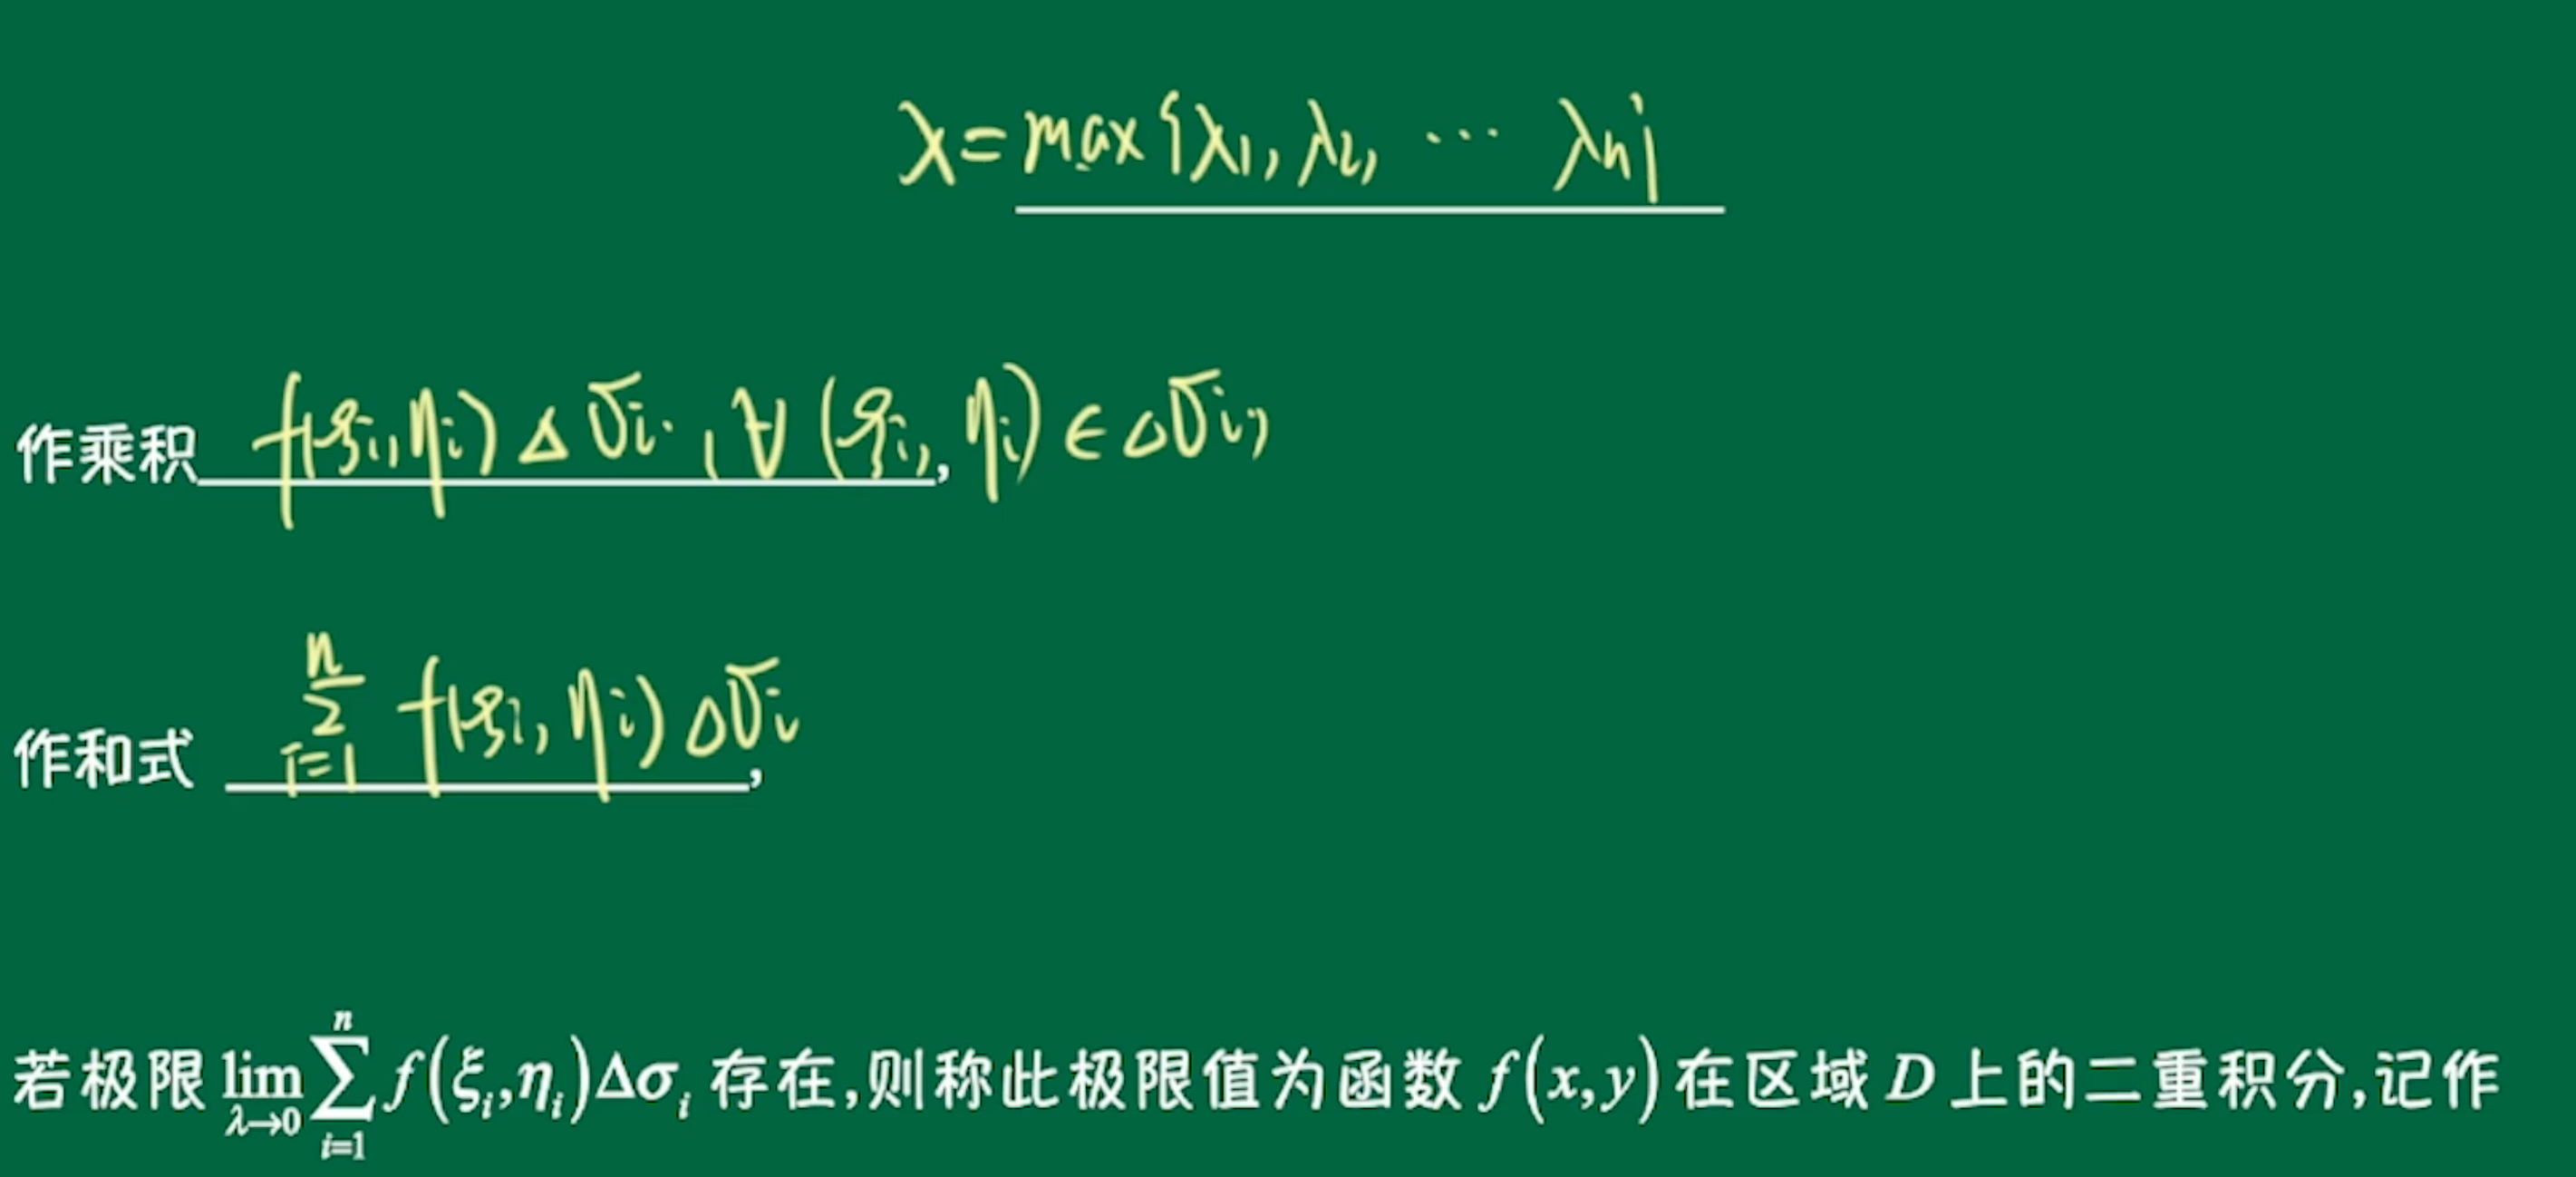 λ=max{λ1, λ2, ··· λn}
作乘积 f(ξi,ηi)Δσi, ∀(ξi,ηi)∈Δσi,
作和式 ∑_{i=1}^{n} f(ξi,ηi)Δσi,
若极限 lim_{λ→0} ∑_{i=1}^{n} f(ξi,ηi)Δσi 存在,则称此极限值为函数 f(x,y) 在区域 D 上的二重积分,记作